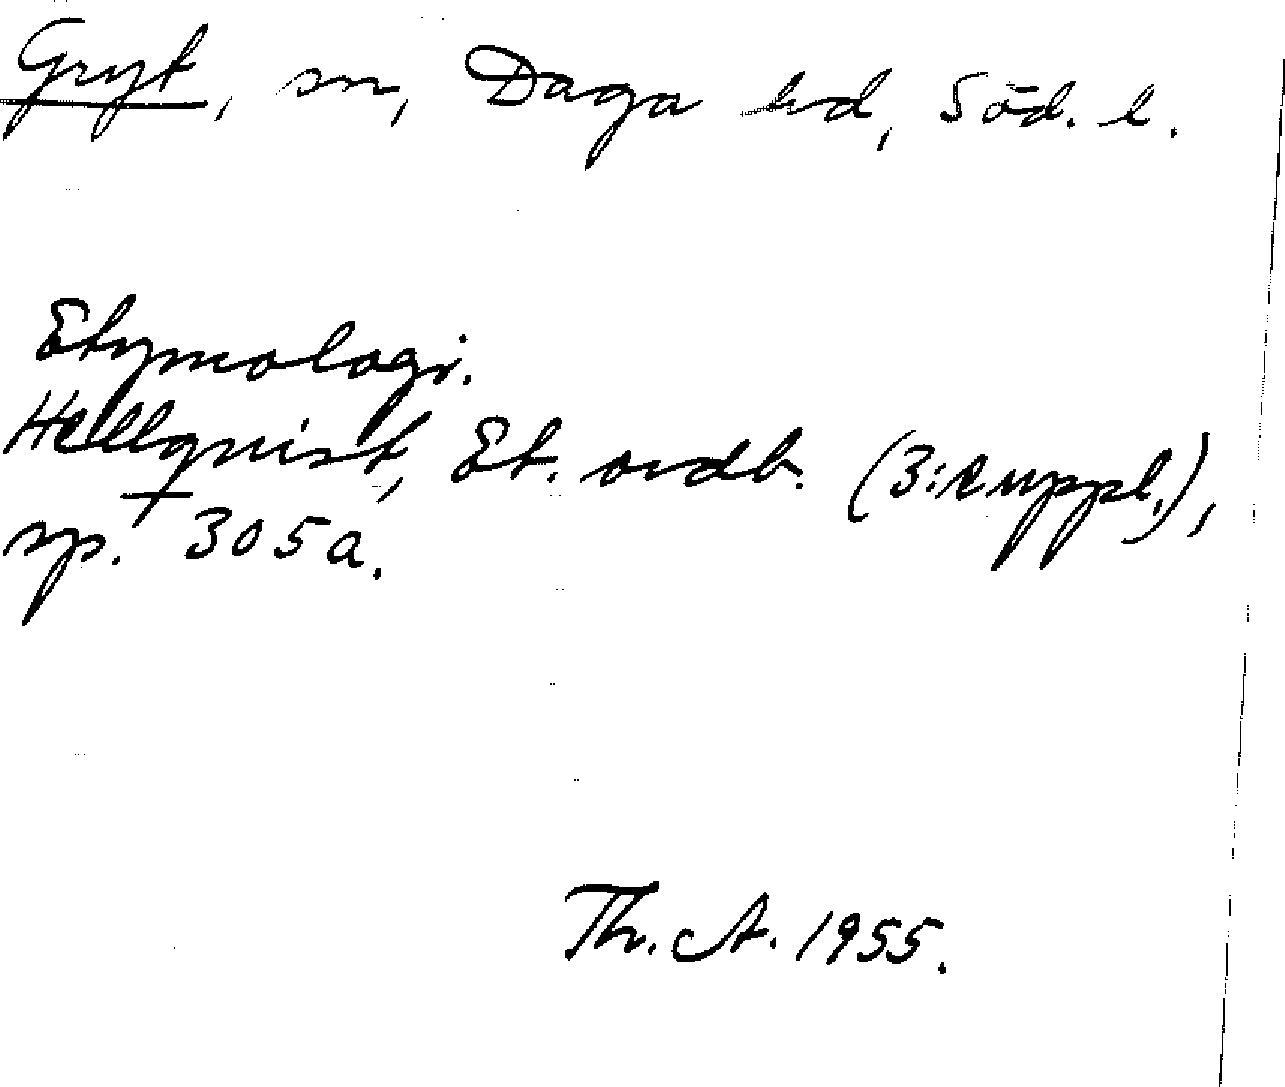 Gryt, sn, Daga hd, Söd. l.
Etymologi.
Hellquist, Et. ordb. (3:e uppl.),
sp. 305a.
Th. A. 1955.